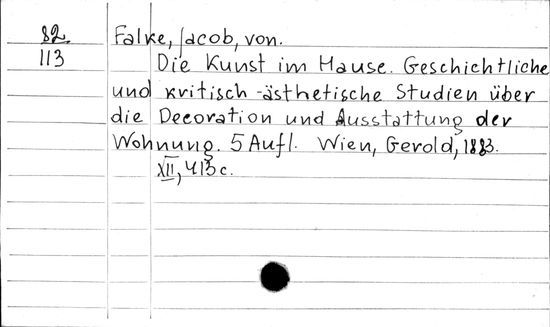 82
113
Falke, Jacob, von.
Die Kunst im Hause. Geschichtliche
und kritisch-ästhetische Studien über
die Decoration und Ausstattung der
Wohnung. 5 Aufl. Wien, Gerold, 1883.
XII, 413 c.